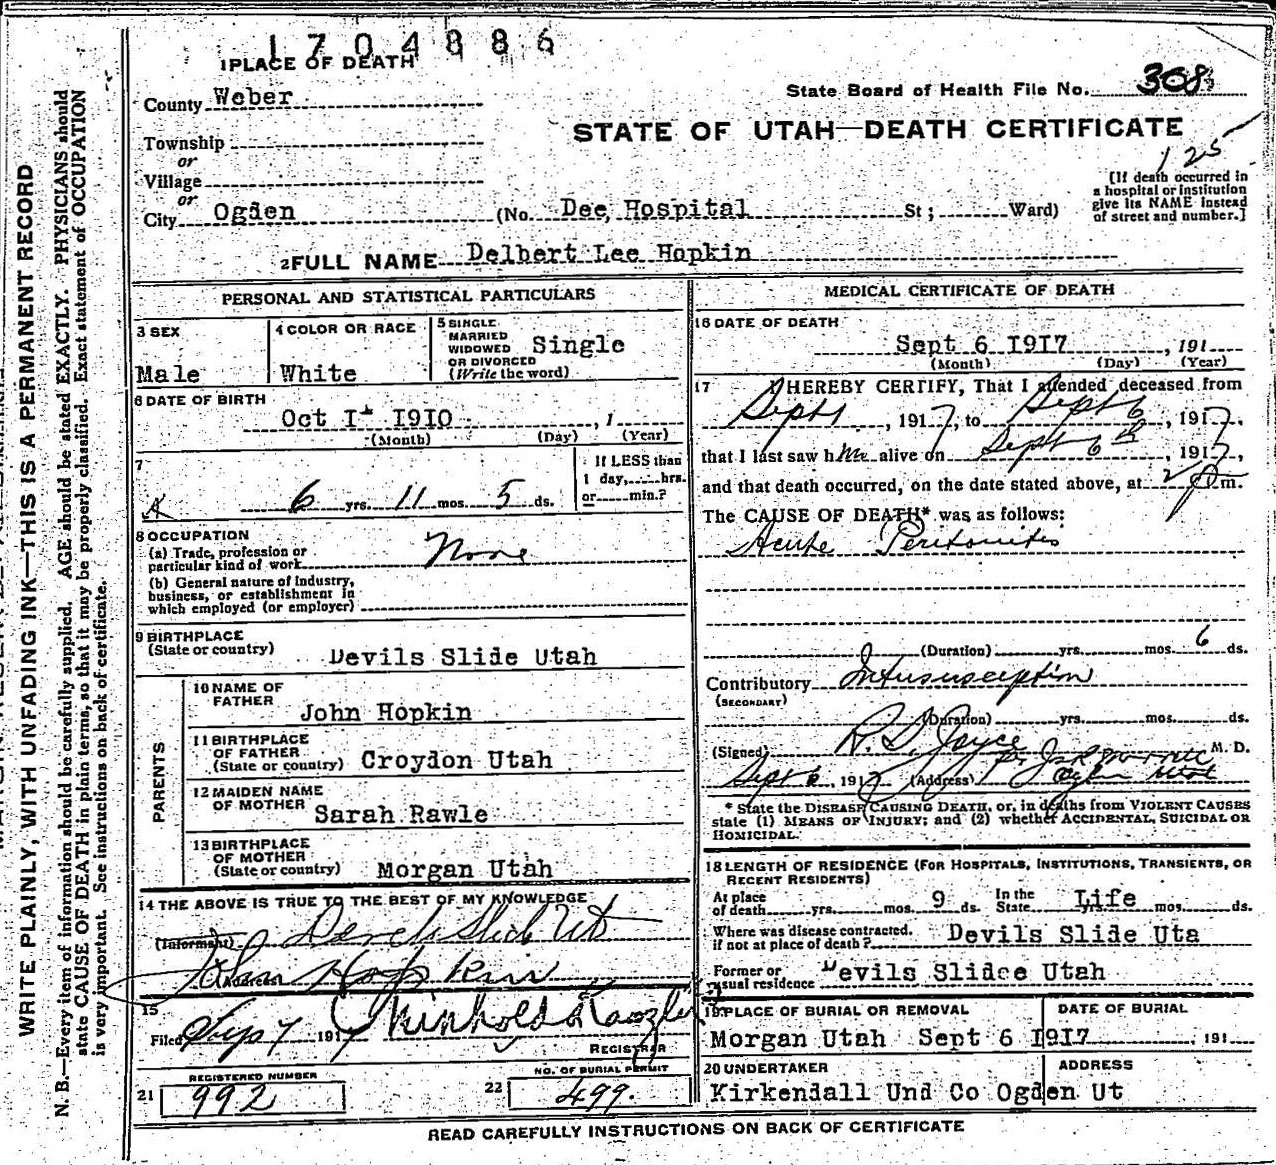 1704886
1 PLACE OF DEATH
County Weber
State Board of Health File No. 308
STATE OF UTAH—DEATH CERTIFICATE
125
Township
or
Village
or
City Ogden (No. Dee, Hospital St; Ward)
[If death occurred in
a hospital or institution
give its NAME instead
of street and number.]
2 FULL NAME Delbert Lee Hopkin
PERSONAL AND STATISTICAL PARTICULARS
3 SEX
Male
4 COLOR OR RACE
White
5 SINGLE
MARRIED
WIDOWED
OR DIVORCED
(Write the word)
Single
6 DATE OF BIRTH
Oct 1 1910 , 1
(Month) (Day) (Year)
7
6 yrs. 11 mos. 5 ds.
If LESS than
1 day, hrs.
or min.?
8 OCCUPATION
(a) Trade, profession or
particular kind of work None
(b) General nature of Industry,
business, or establishment in
which employed (or employer)
9 BIRTHPLACE
(State or country) Devils Slide Utah
PARENTS
10 NAME OF
FATHER
John Hopkin
11 BIRTHPLACE
OF FATHER
(State or country) Croydon Utah
12 MAIDEN NAME
OF MOTHER
Sarah Rawle
13 BIRTHPLACE
OF MOTHER
(State or country) Morgan Utah
14 THE ABOVE IS TRUE TO THE BEST OF MY KNOWLEDGE
(Informant) Devils Slide Ut
(Address) John Hopkin
15
Filed Sep 7 1917
REGISTRAR
REGISTERED NUMBER
21 992
NO. OF BURIAL PERMIT
22 499.
MEDICAL CERTIFICATE OF DEATH
16 DATE OF DEATH
Sept 6 1917 , 191
(Month) (Day) (Year)
17 I HEREBY CERTIFY, That I attended deceased from
Sept 1 , 1917, to Sept 6 , 1917,
that I last saw him alive on Sept 6th , 1917,
and that death occurred, on the date stated above, at 2 p m.
The CAUSE OF DEATH* was as follows:
Acute Peritonitis
(Duration) yrs. mos. 6 ds.
Contributory Intususception
(SECONDARY)
(Duration) yrs. mos. ds.
(Signed) R. S. Joyce M. D.
Sept 6, 1917 (Address) Ogden Utah
* State the DISEASE CAUSING DEATH, or, in deaths from VIOLENT CAUSES
state (1) MEANS OF INJURY; and (2) whether ACCIDENTAL, SUICIDAL OR
HOMICIDAL.
18 LENGTH OF RESIDENCE (FOR HOSPITALS, INSTITUTIONS, TRANSIENTS, OR
RECENT RESIDENTS)
At place
of death yrs. mos. 9 ds.
In the
State Life yrs. mos. ds.
Where was disease contracted.
if not at place of death? Devils Slide Uta
Former or
usual residence Devils Slidee Utah
19 PLACE OF BURIAL OR REMOVAL
DATE OF BURIAL
Morgan Utah Sept 6 1917 , 191
20 UNDERTAKER
ADDRESS
Kirkendall Und Co Ogden Ut
READ CAREFULLY INSTRUCTIONS ON BACK OF CERTIFICATE
WRITE PLAINLY, WITH UNFADING INK—THIS IS A PERMANENT RECORD
N. B.—Every item of information should be carefully supplied. AGE should be stated EXACTLY. PHYSICIANS should
state CAUSE OF DEATH in plain terms, so that it may be properly classified. Exact statement of OCCUPATION
is very important. See instructions on back of certificate.